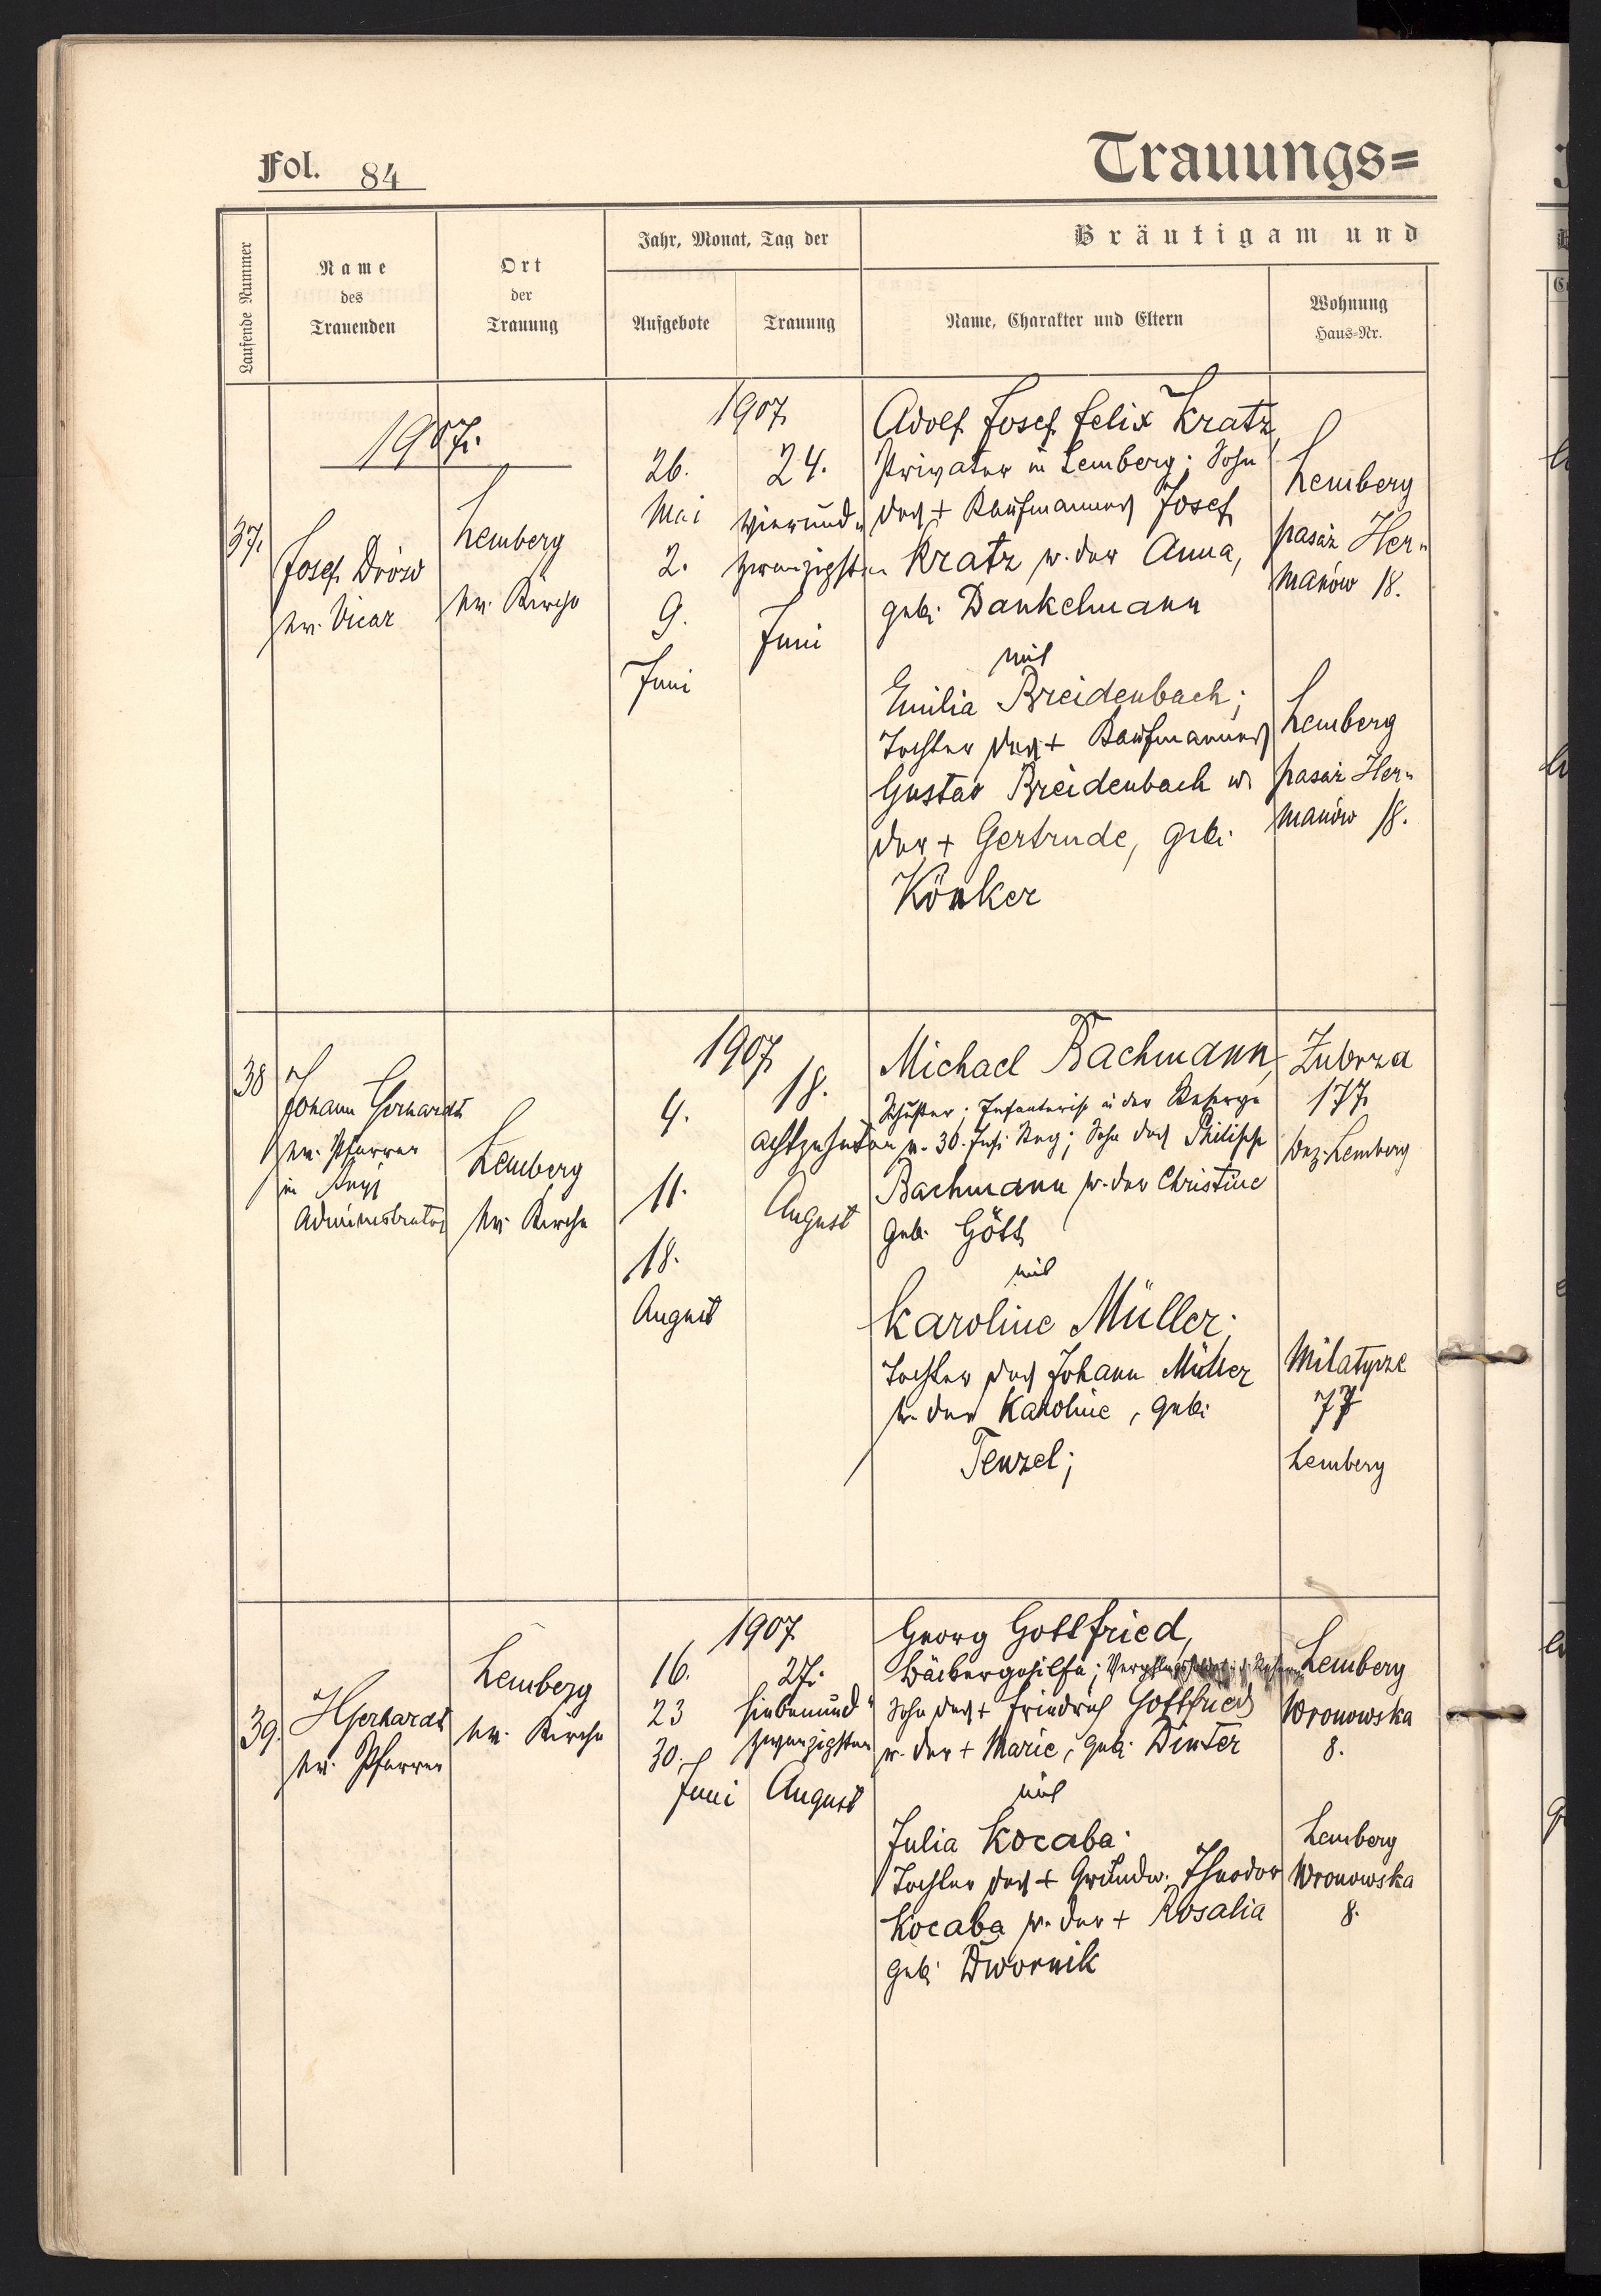 Fol. 84
Trauungs=
Laufende Nummer
Name
des
Trauenden
Ort
der
Trauung
Jahr, Monat, Tag der
Aufgebote
Trauung
Bräutigam und
Name, Charakter und Eltern
Wohnung
Haus-Nr.
1907.
37.
Josef Drósd
ev. Vicar
Lemberg
ev. Kirche
1907
26.
Mai
2.
9.
Juni
24.
vierund-
zwanzigsten
Juni
Adolf Josef Felix Kratz,
Privater in Lemberg; Sohn
des + Kaufmannes Josef
Kratz u. der Anna,
geb. Dankelmann
mit
Emilia Breidenbach;
Tochter des + Kaufmannes
Gustav Breidenbach u.
der + Gertrude, geb.
Könker
Lemberg
pasaż Her-
manów 18.
Lemberg
pasaż Her-
manów 18.
38
Johann Gerhardt
ev. Pfarrer
in Stryj
Administrator
Lemberg
ev. Kirche
1907
4.
11.
18.
August
18.
achtzehnten
August
Michael Bachmann,
Schuster; Infanterist in der Reserve
v. 30. Inf. Reg; Sohn des Philipp
Bachmann u. der Christine
geb. Gött
mit
Karoline Müller;
Tochter des Johann Müller
u. der Karoline, geb.
Tenzel;
Zubrza
177.
Bez. Lemberg
Milatycze
77
Lemberg
39.
JGerhardt
ev. Pfarrer
Lemberg
ev. Kirche
1907
16.
23
30.
Juni
27.
siebenund-
zwanzigsten
August
Georg Gottfried,
Bäckergehilfe;
Sohn des + Friedrich Gottfried
u. der + Marie, geb. Dinter
mit
Julia Kocaba;
Tochter des + Grundw. Theodor
Kocaba u. der + Rosalia
geb. Dwornik
Lemberg
Wronowska
8.
Lemberg
Wronowska
8.